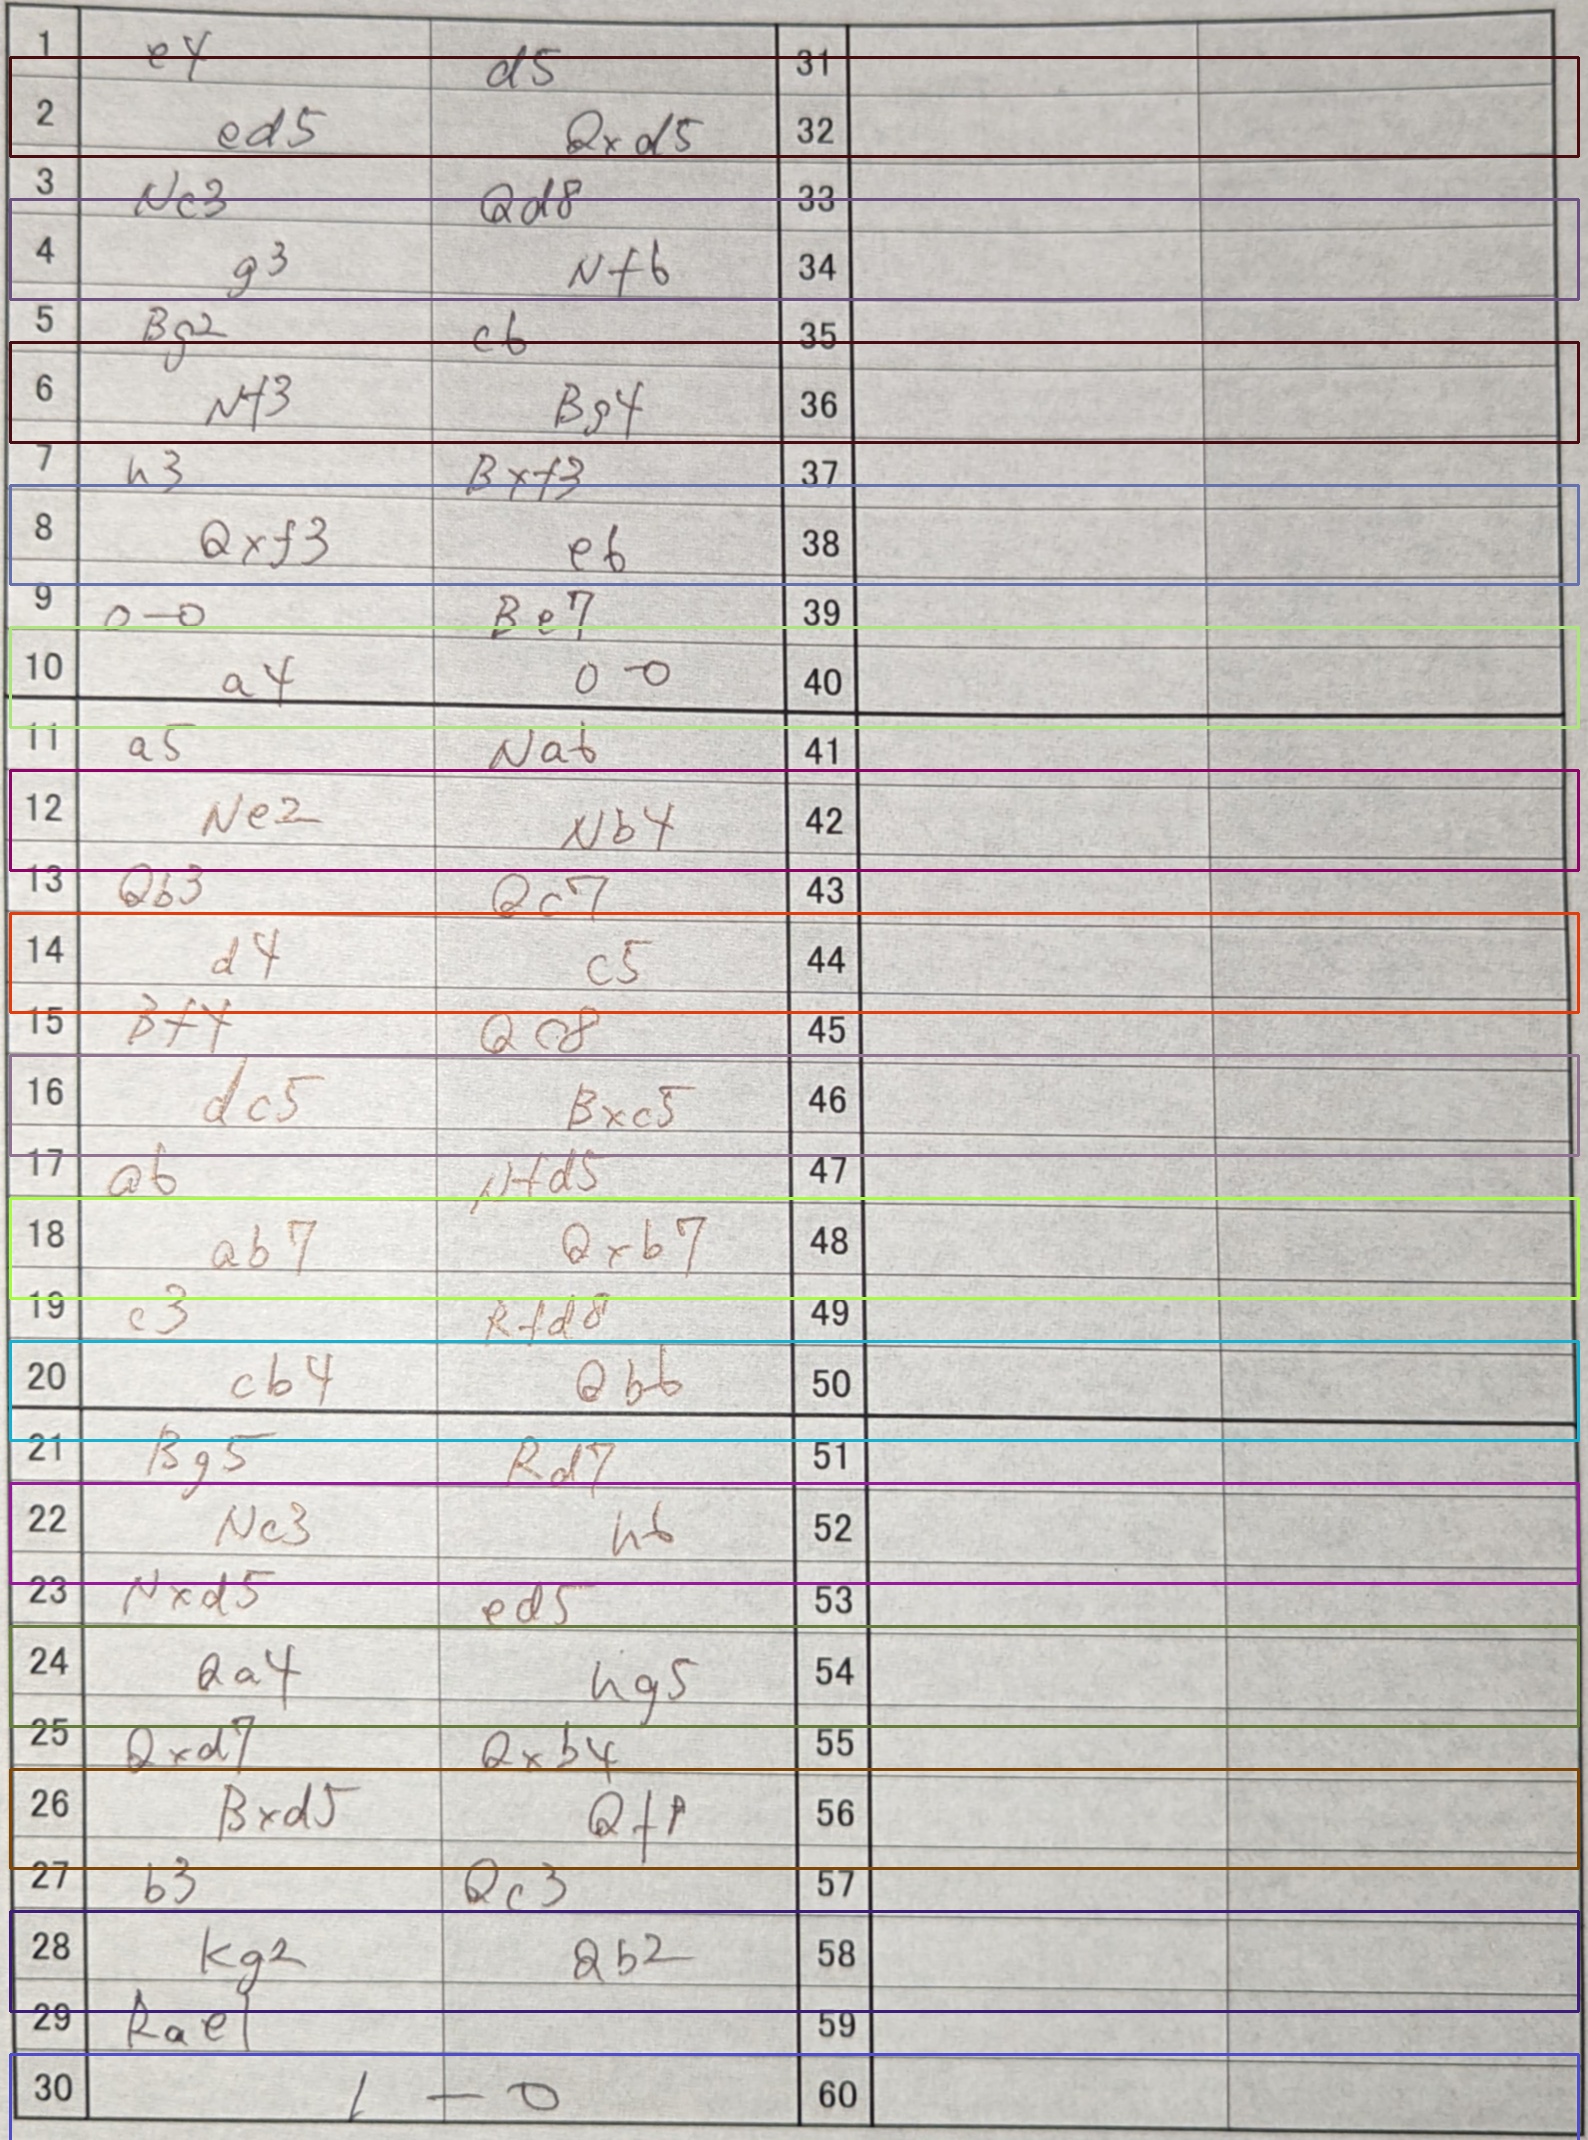 1 e4 d5 31
2 ed5 Qxd5 32
3 Nc3 Qd8 33
4 g3 Nf6 34
5 Bg2 c6 35
6 Nf3 Bg4 36
7 h3 Bxf3 37
8 Qxf3 e6 38
9 0-0 Be7 39
10 a4 0-0 40
11 a5 Na6 41
12 Ne2 Nb4 42
13 Qb3 Qc7 43
14 d4 c5 44
15 Bf4 Qc8 45
16 dc5 Bxc5 46
17 a6 Nfd5 47
18 ab7 Qxb7 48
19 c3 Rfd8 49
20 cb4 Qb6 50
21 Bg5 Rd7 51
22 Nc3 h6 52
23 Nxd5 ed5 53
24 Qa4 hg5 54
25 Qxd7 Qxb4 55
26 Bxd5 56
27 b3 Qc3 57
28 Kg2 Qb2 58
29 Rae1 59
30 1-0 60